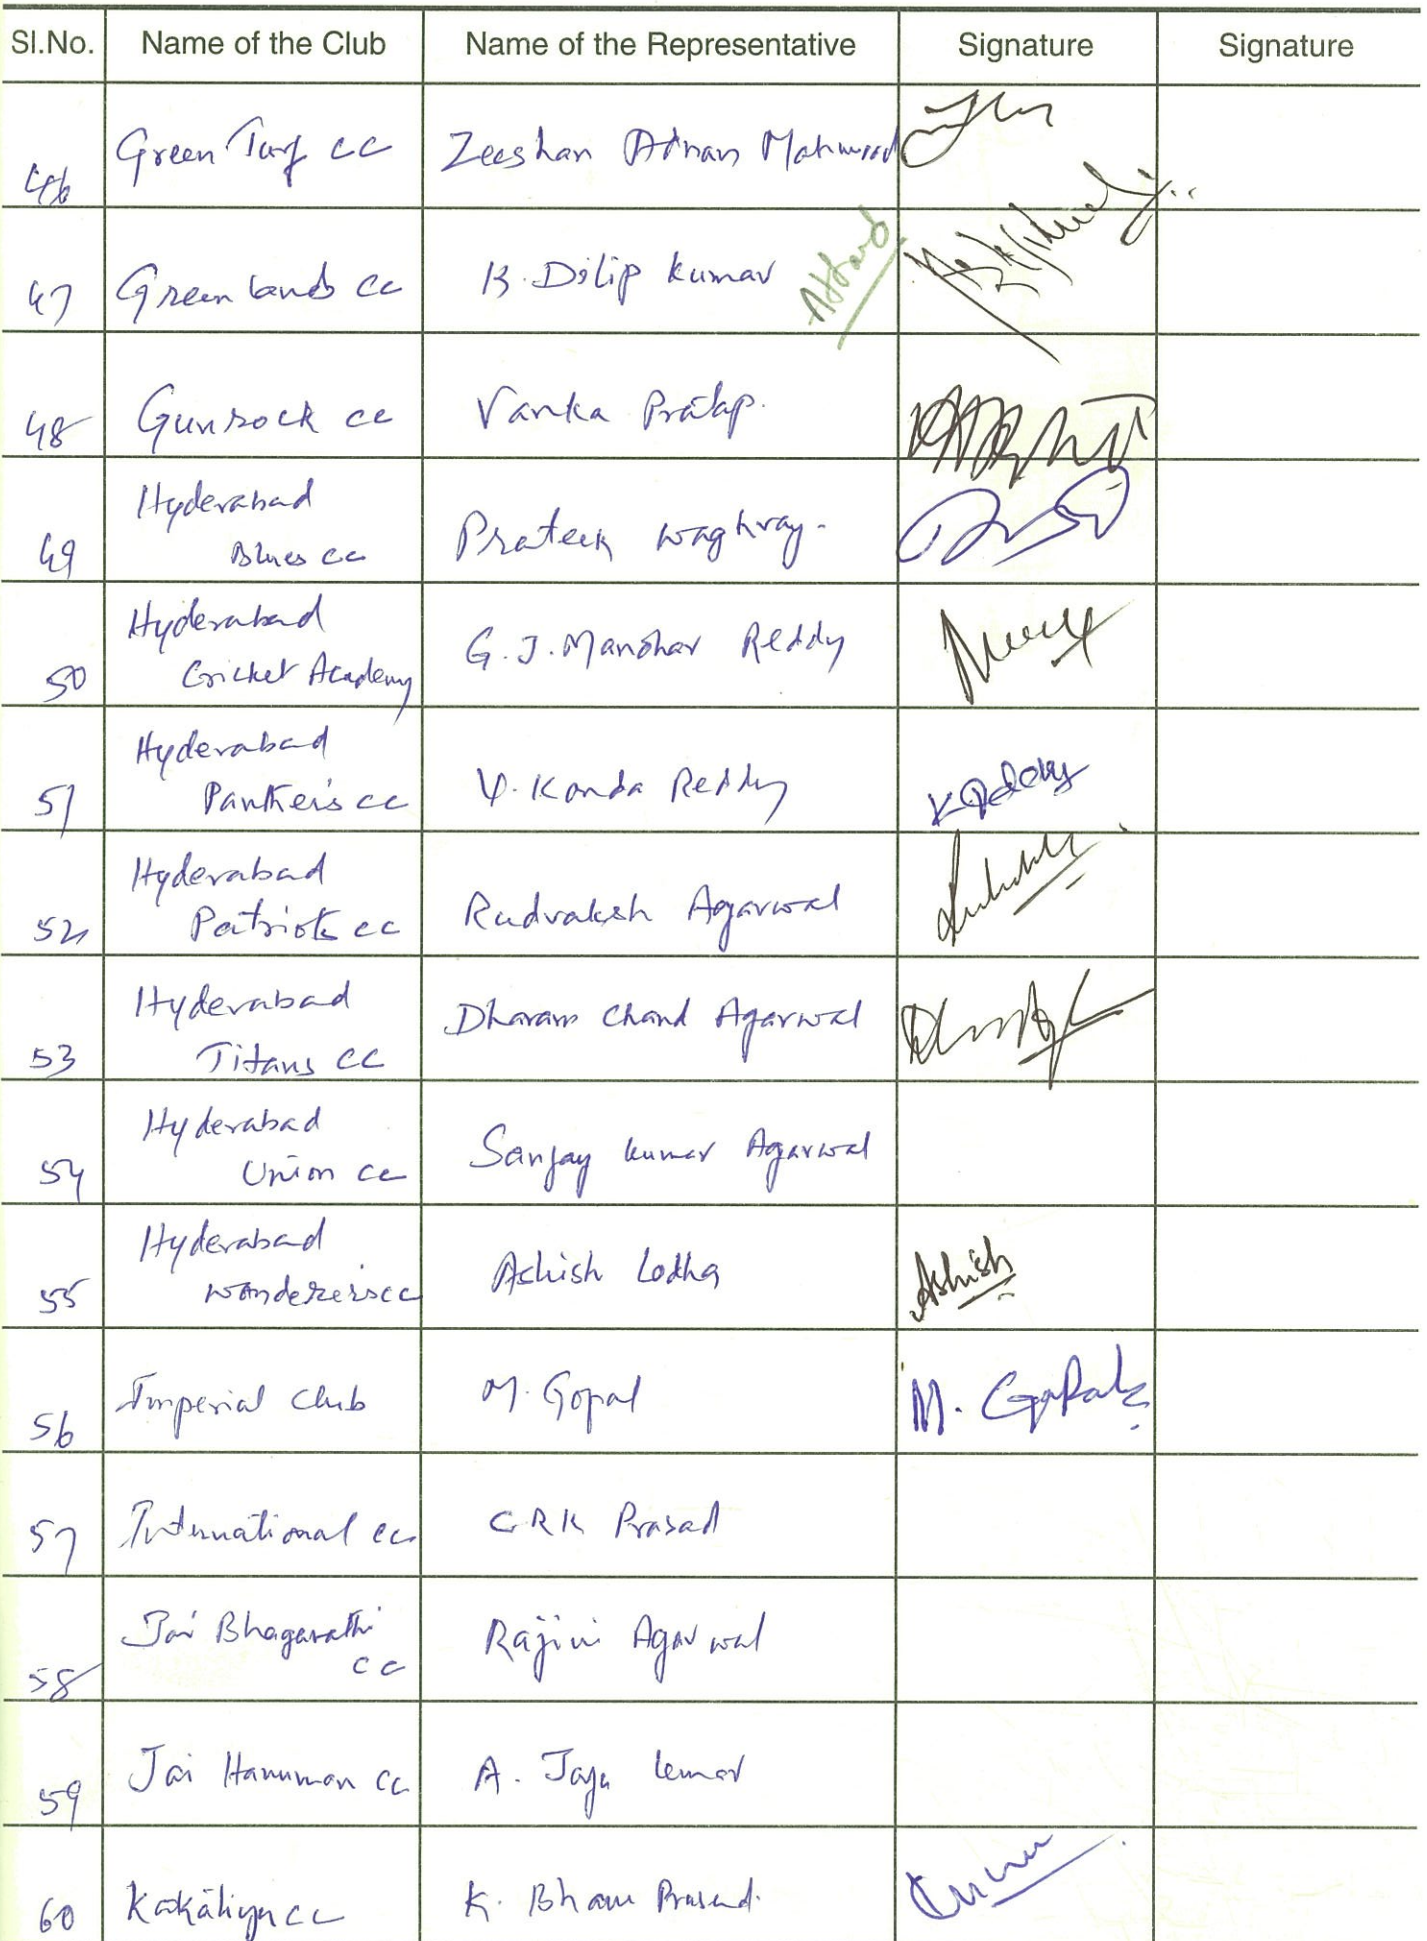 Sl.No. Name of the Club Name of the Representative Signature Signature
46 Green Turf cc Zeeshan Adnan Mahmood
47 Green lands cc B. Dilip Kumar
48 Gunrock cc Vanka Pratap.
Hyderabad
49 Blues cc Prateek Waghray.
Hyderabad
50 Cricket Academy G. J. Manohar Reddy
Hyderabad
51 Panthers cc Konda Reddy K Reddy
Hyderabad
52 Patriots cc Rudraksh Agarwal
Hyderabad
53 Titans cc Dharam Chand Agarwal
Hyderabad
54 Union cc Sanjay Kumar Agarwal
Hyderabad
55 Wanderers cc Ashish Lodha Ashish
56 Imperial Club M. Gopal M. Gopal
57 International cc CRK Prasad
Jai Bhagavathi
58 cc Rajini Agarwal
59 Jai Hanuman cc A. Jaya Kumar
60 Kakatiya cc K. Prasad.